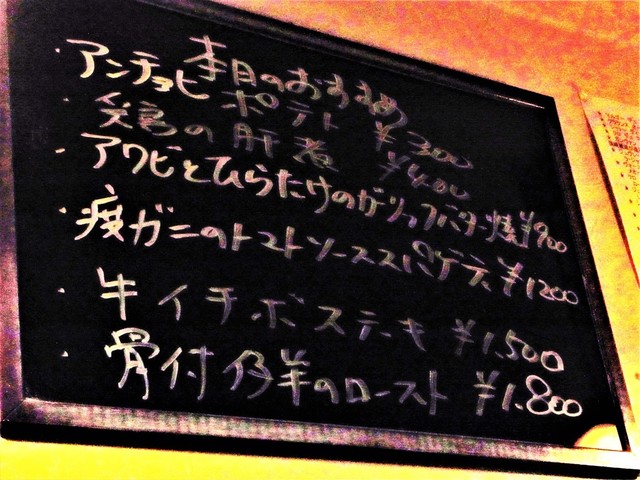 本日のおすすめ
・アンチョビ ポテト ¥300
・鶏の肝煮 ¥400
・アワビとひらたけのガーリックバター焼¥900
・渡ガニのトマトソーススパゲティ¥1200
・牛イチボステーキ ¥1.500
・骨付仔羊のロースト ¥1.800